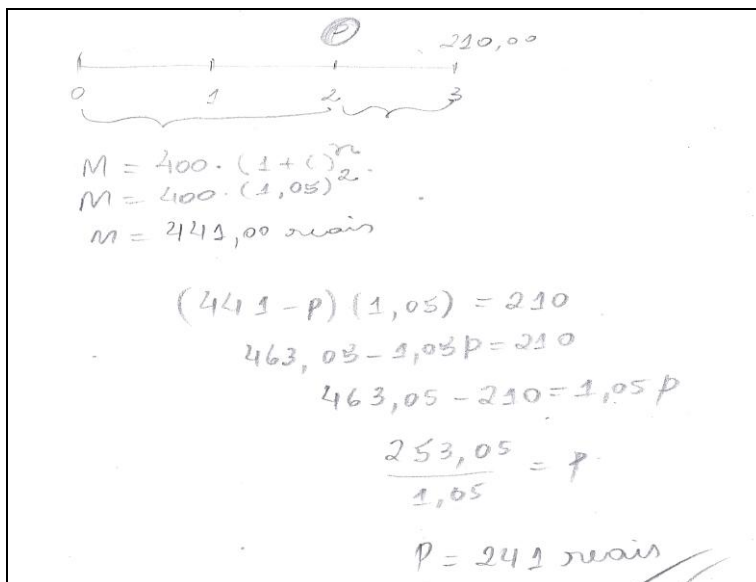 P 210,00
0 1 2 3
M = 400 · (1 + i)^n
M = 400 · (1,05)^2
M = 441,00 reais
(441 - P) (1,05) = 210
463,05 - 1,05P = 210
463,05 - 210 = 1,05 P
253,05 / 1,05 = P
P = 241 reais